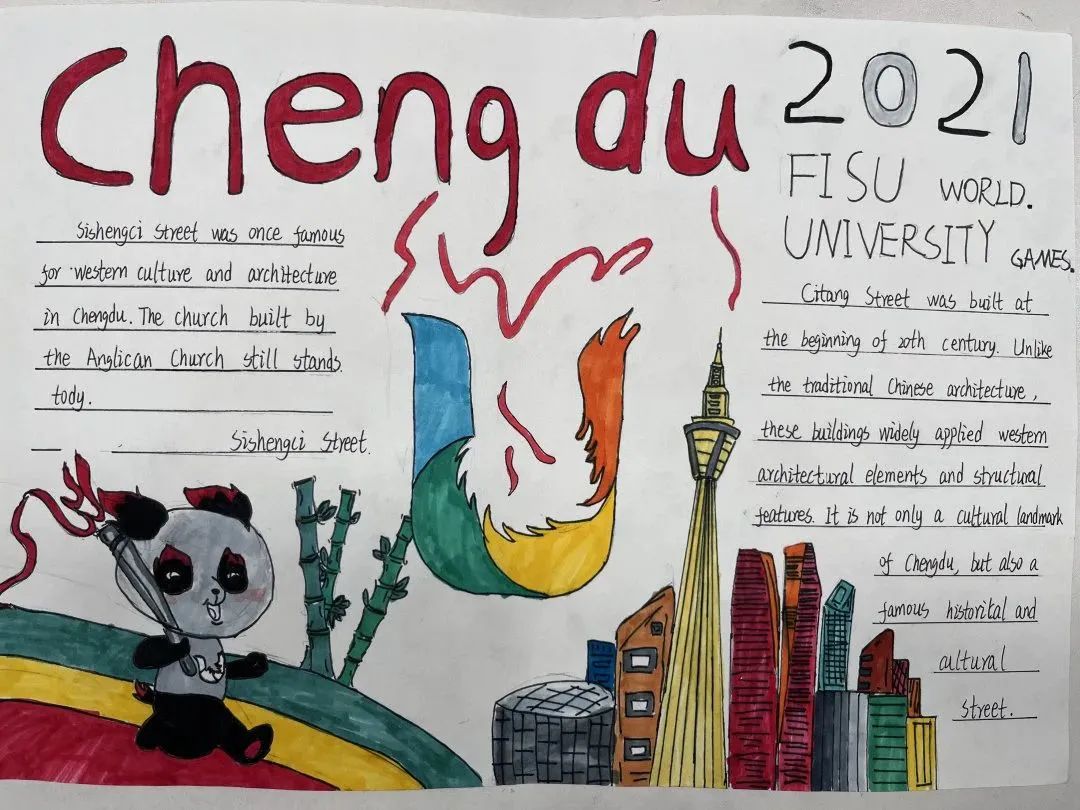 Chengdu
2021
FISU WORLD.
UNIVERSITY GAMES.
Sishengci Street was once famous
for western culture and architecture
in Chengdu. The church built by
the Anglican Church still stands
tody.
Sishengci Street.
Citang Street was built at
the beginning of 20th century. Unlike
the traditional Chinese architecture,
these buildings widely applied western
architectural elements and structural
features. It is not only a cultural landmark
of Chengdu, but also a
famous historikal and
cultural
street.